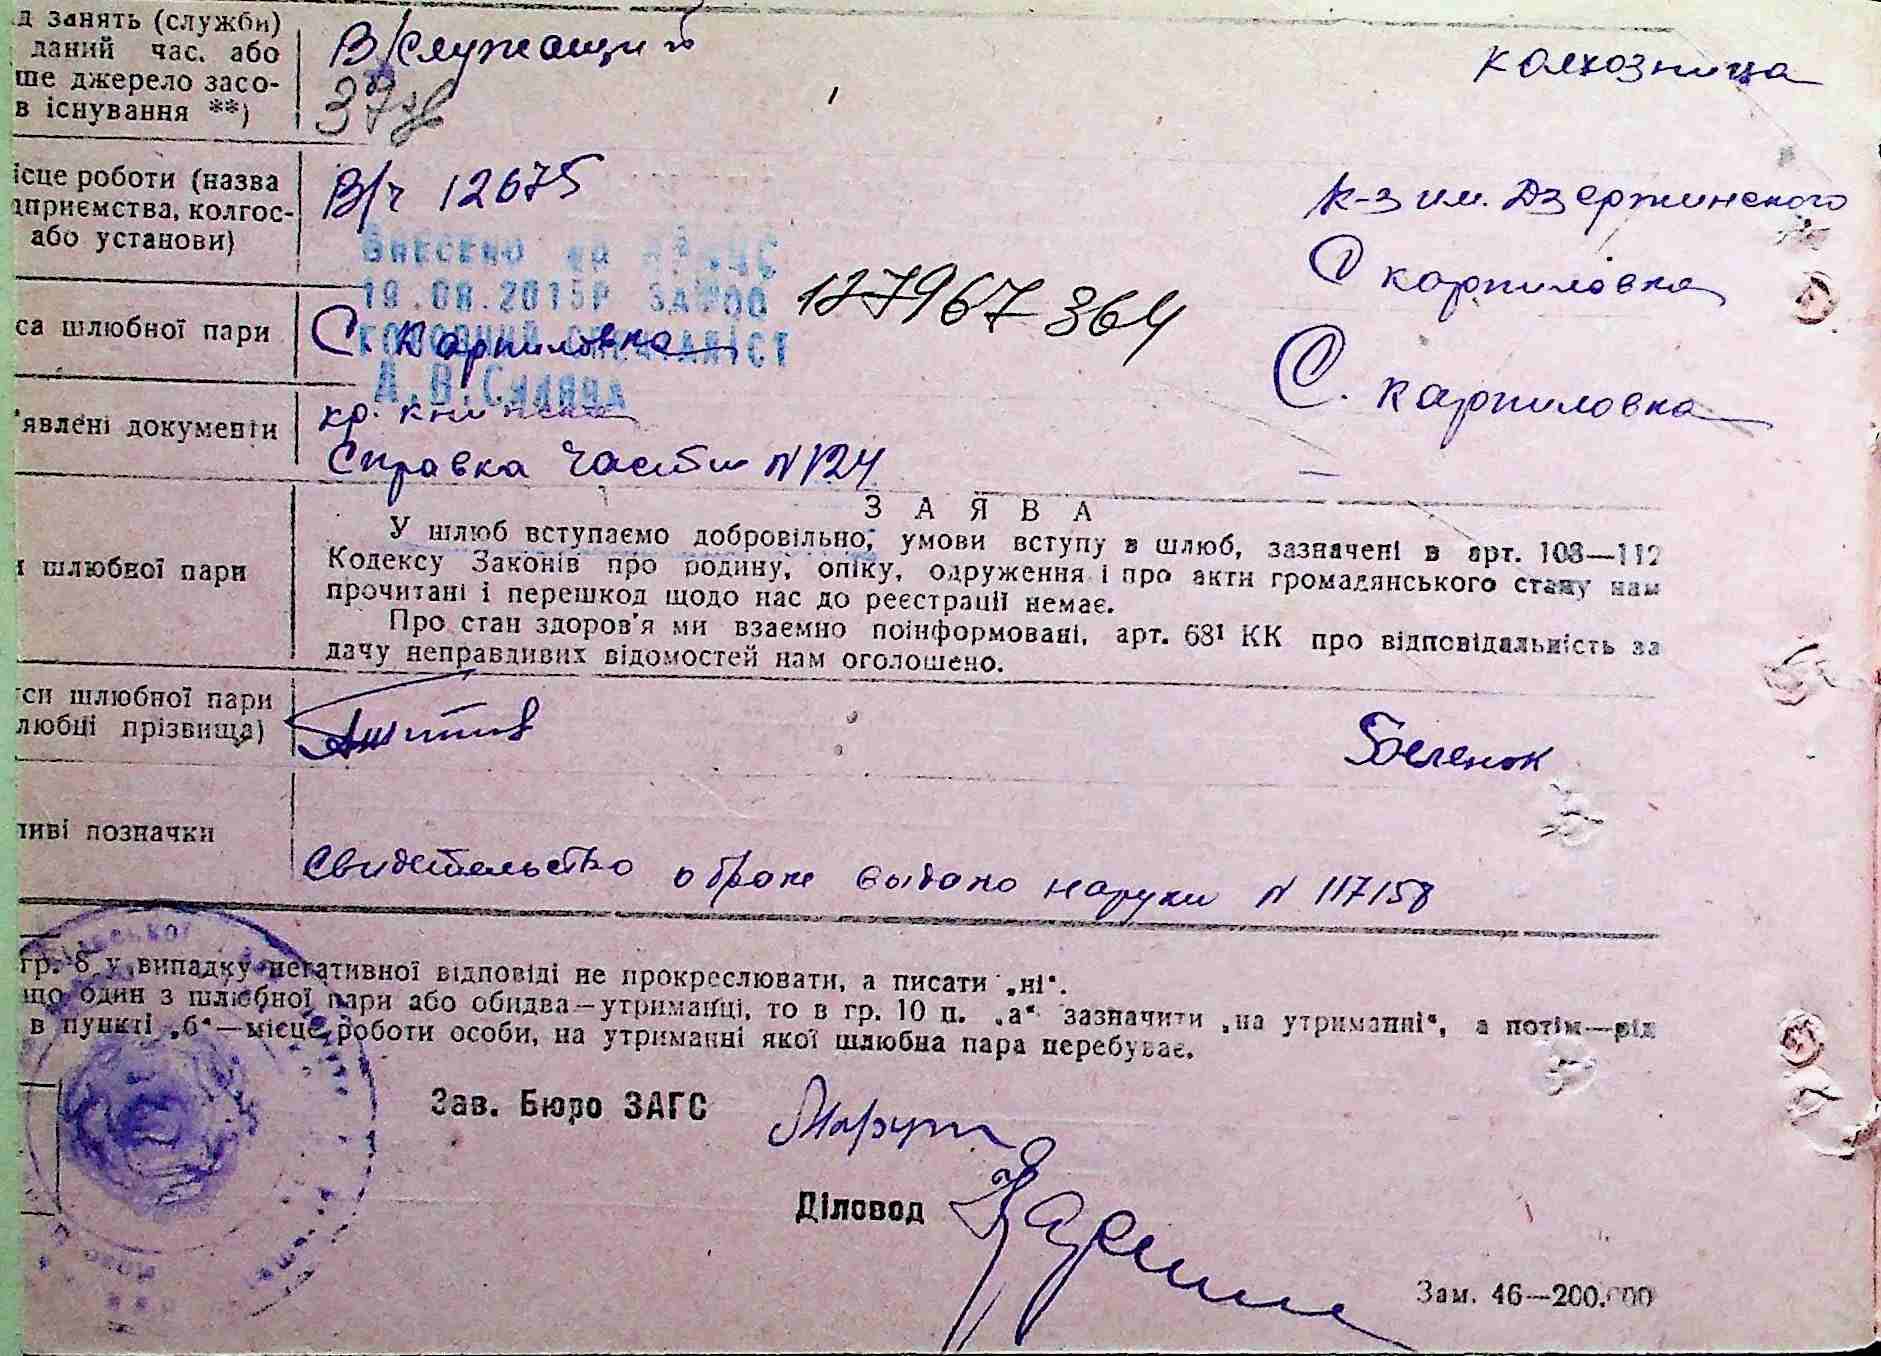 д занять (служби)
даний час. або
ше джерело засо-
в існування **)
В/служащий
колхозница
ісце роботи (назва
дприємства, колгос-
або установи)
В/ч 12675
к-з им. Дзержинского
С карпиловка
Внесено до
19.08.2015р
А.В.
127967364
са шлюбної пари
С. Карпиловка
С. карпиловка
'явлені документи
кр. книжка
Справка части N 124
—
ЗАЯВА
и шлюбної пари
У шлюб вступаємо добровільно, умови вступу в шлюб, зазначені в арт. 108—112
Кодексу Законів про родину, опіку, одруження і про акти громадянського стану нам
прочитані і перешкод щодо нас до реєстрації немає.
Про стан здоров'я ми взаємно поінформовані, арт. 68¹ КК про відповідальність за
дачу неправдивих відомостей нам оголошено.
си шлюбної пари
любні прізвища)
Беленок
ливі позначки
Свидетельство о браке выдано наруки N 117158
гр. 8 у випадку негативної відповіді не прокреслювати, а писати „ні“.
що один з шлюбної пари або обидва—утриманці, то в гр. 10 п. „а“ зазначити „на утриманні“, а потім—від
в пункті „б“—місце роботи особи, на утриманні якої шлюбна пара перебуває.
Зав. Бюро ЗАГС
Діловод
Зам. 46—200.000